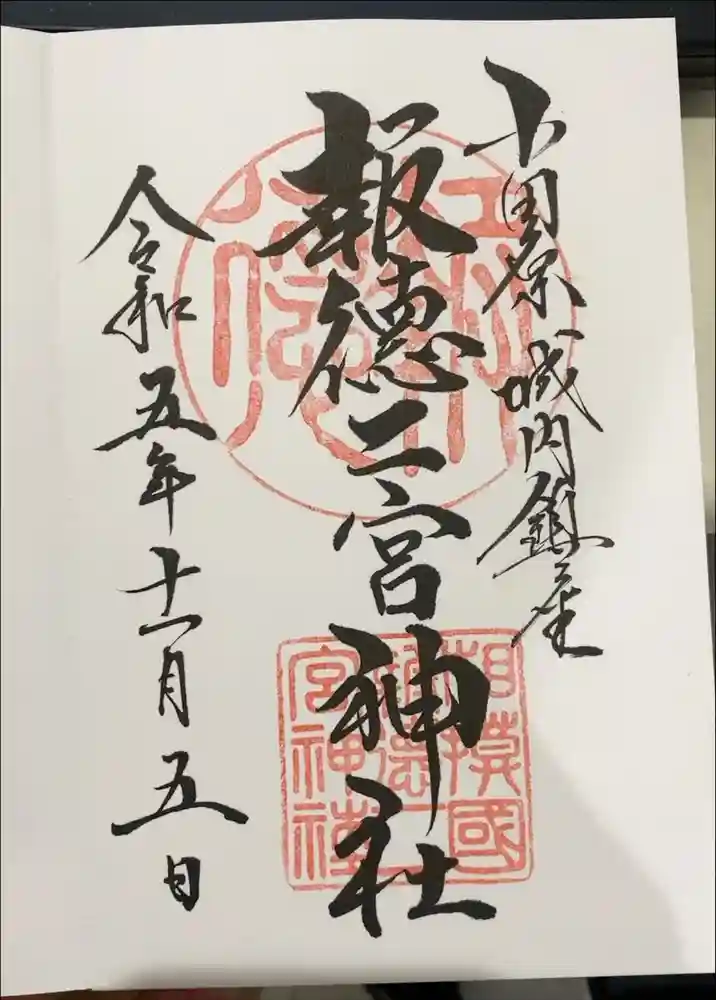 小田原城内鎮座
報徳二宮神社
令和五年十一月五日
相模國
報德二
宮神社